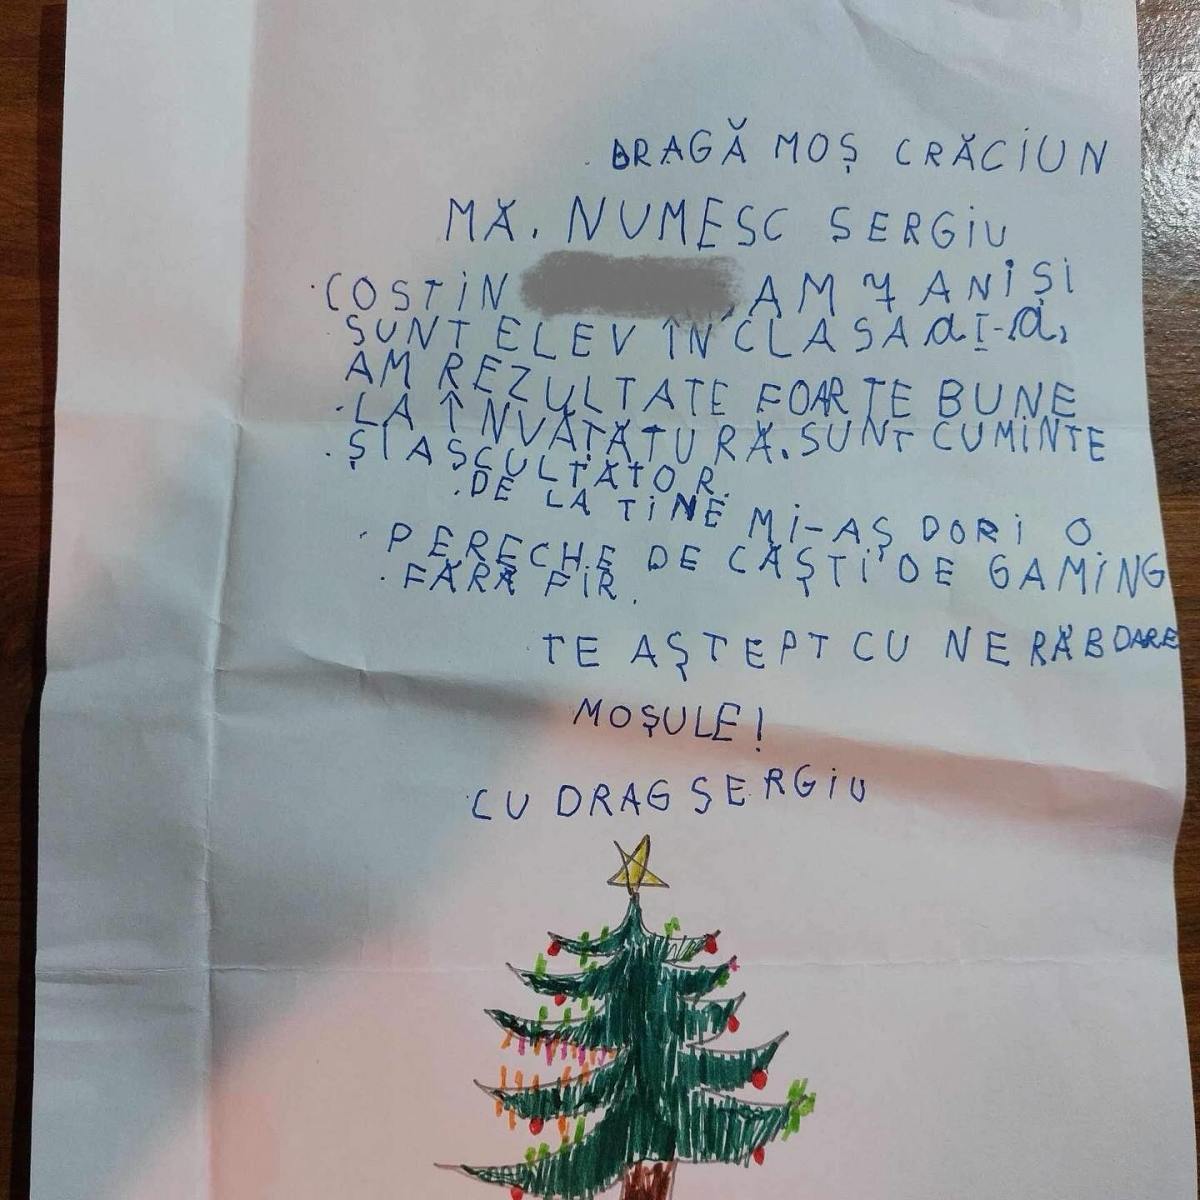 DRAGĂ MOȘ CRĂCIUN
MĂ. NUMESC SERGIU
COSTIN , AM 7 ANI ȘI
SUNT ELEV ÎN CLASA a I-a,
AM REZULTATE FOARTE BUNE
LA ÎNVĂȚĂTURĂ. SUNT CUMINTE
ȘI ASCULTĂTOR.
DE LA TINE MI-AȘ DORI O
PERECHE DE CĂȘTI DE GAMING
FĂRĂ FIR.
TE AȘTEPT CU NERĂBDARE
MOȘULE!
CU DRAG SERGIU